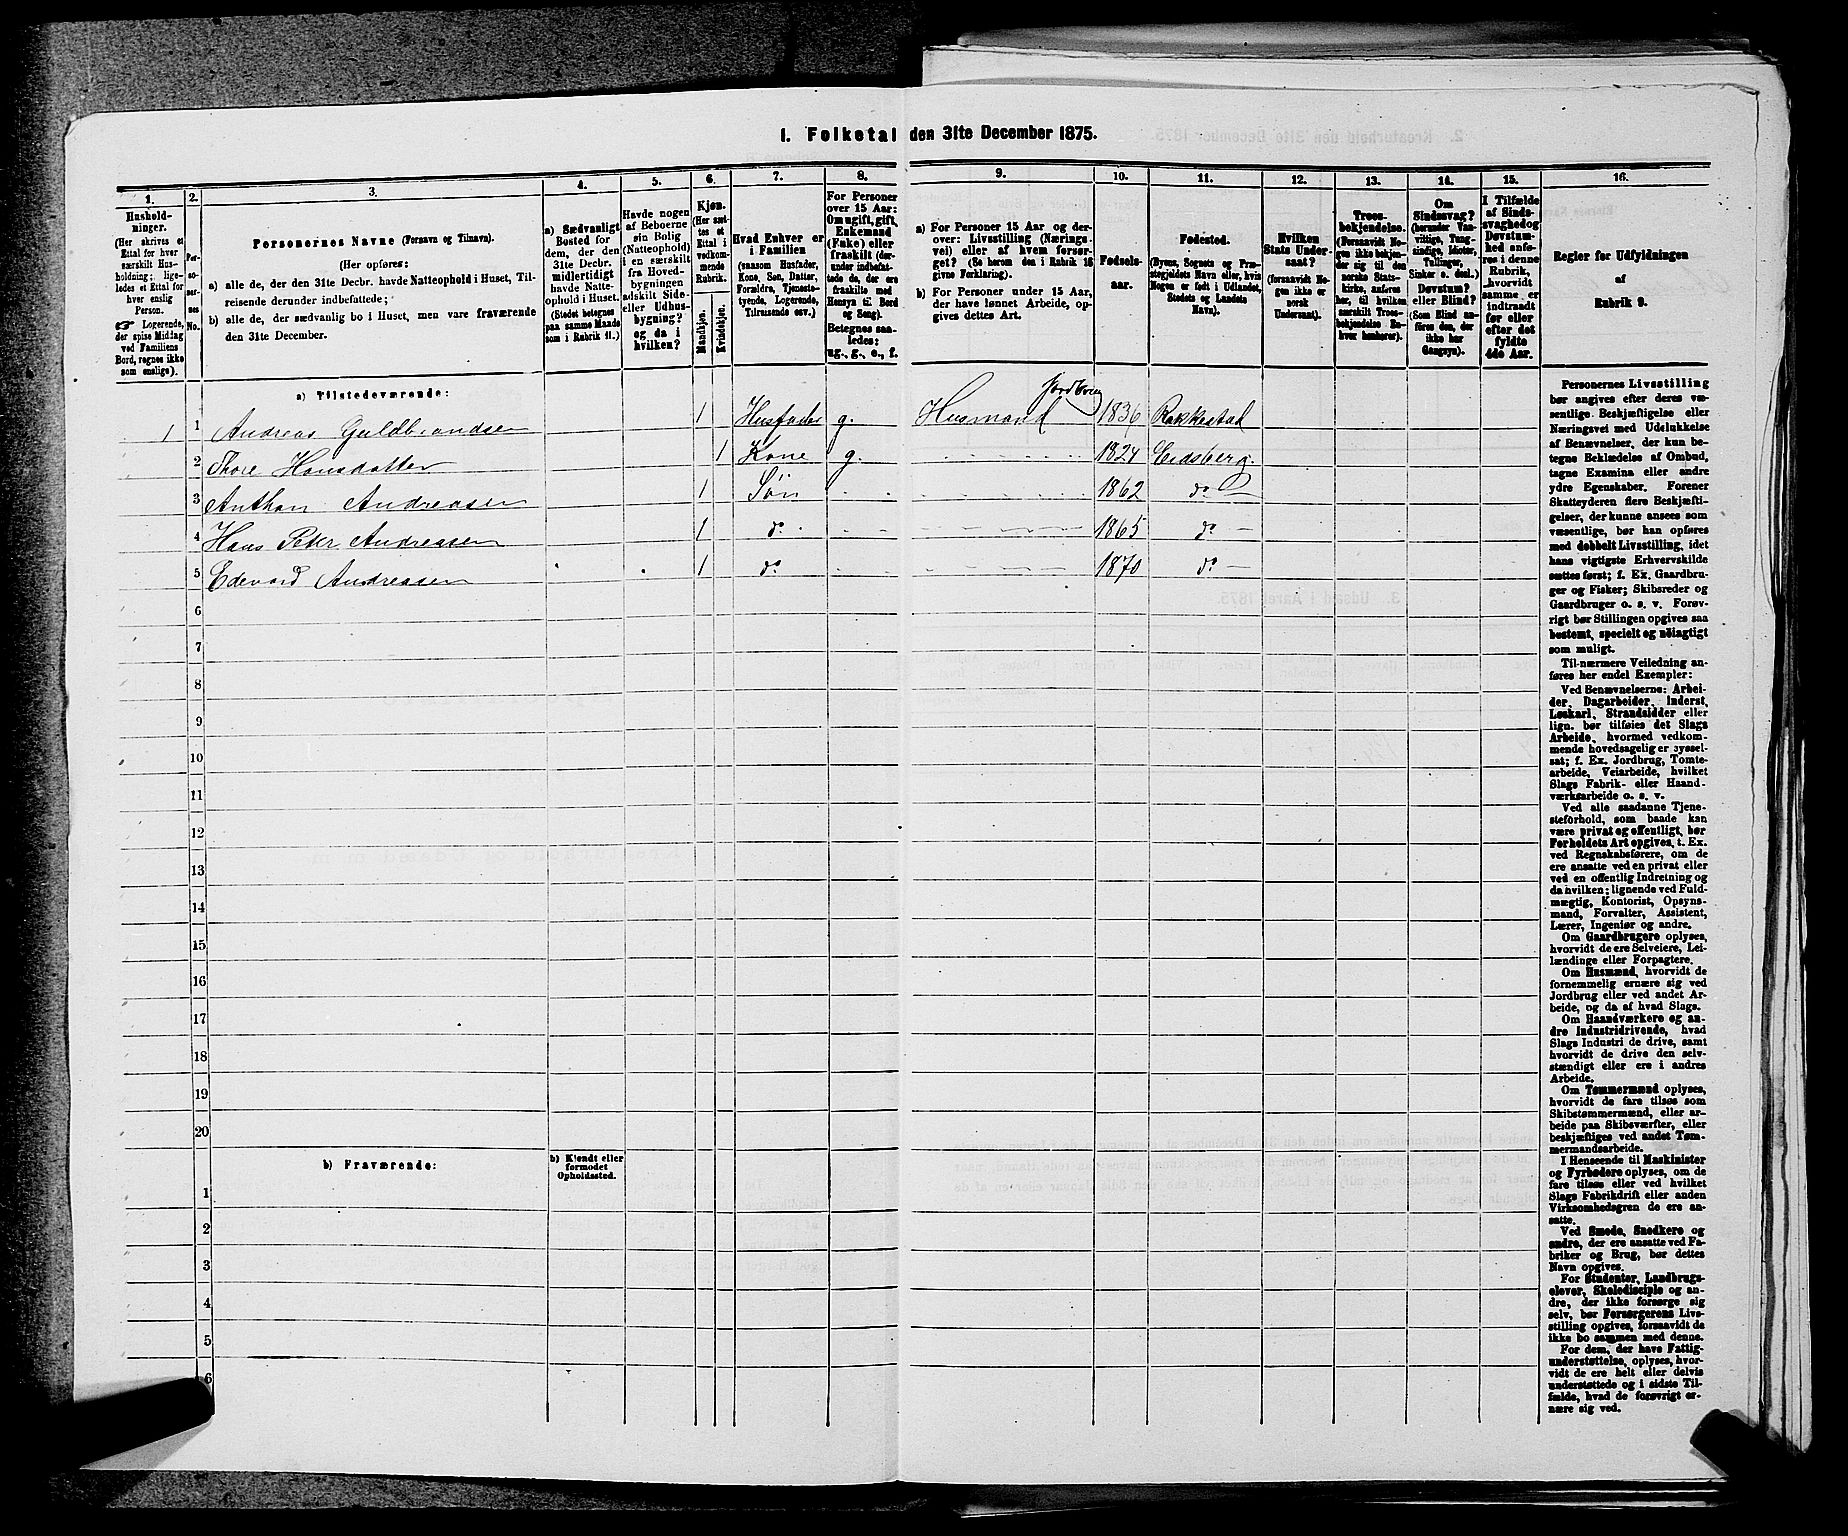 1. Folketal den 31te December 1875.
1. 2. 3. 4. 5. 6. 7. 8. 9. 10. 11. 12. 13. 14. 15. 16.
Hushold-
ninger.
(Her skrives et
Ettal for hver
særskilt Hus-
holdning; lige-
ledes et Ettal for
hver enslig
Person.
☞ Logerende,
der spise Middag
ved Familiens
Bord, regnes ikke
som enslige).
Per-
so-
ner-
nes
No.
Personernes Navne (Fornavn og Tilnavn).
(Her opføres:
a) alle de, der den 31te Decbr. havde Natteophold i Huset, Til-
reisende derunder indbefattede;
b) alle de, der sædvanlig bo i Huset, men vare fraværende
den 31te December.
a) Sædvanligt
Bosted for
dem, der den
31te Decbr.
midlertidigt
havde Natte-
ophold i Huset.
(Stedet betegnes
paa samme Maade
som i Rubrik 11.)
Havde nogen
af Beboerne
sin Bolig
(Natteophold)
i en særskilt
fra Hoved-
bygningen
adskilt Side-
eller Udhus-
bygning?
og da i
hvilken?
Kjøn.
(Her sæt-
tes et
Ettal i
vedkom-
mende
Rubrik.
Mandkjøn.
Kvindekjøn.
Hvad Enhver er
i Familien
(saasom Husfader,
Kone, Søn, Datter,
Forældre, Tjeneste-
tyende, Logerende,
Tilreisende osv.)
For Personer
over 15 Aar:
Om ugift, gift,
Enkemand
(Enke) eller
fraskilt (der-
under indbefat-
tede de, der ere
fraskilte med
Hensyn til Bord
og Seng).
Betegnes saa-
ledes:
ug., g., e., f.
a) For Personer 15 Aar og der-
over: Livsstilling (Nærings-
vei) eller af hvem forsør-
get? (Se herom den i Rubrik 16
givne Forklaring).
b) For Personer under 15 Aar,
der have lønnet Arbeide, op-
gives dettes Art.
Fødsels-
aar.
Fødested.
(Byens, Sognets og Præ-
stegjeldets Navn eller, hvis
Nogen er født i Udlandet,
Stedets og Landets
Navn).
Hvilken
Stats Under-
saat?
(forsaavidt No-
gen ikke er
norsk
Undersaat).
Troes-
bekjendelse.
(Forsaavidt No-
gen ikke bekjen-
der sig til den
norske Stats-
kirke, anføres
her, til hvilken
særskilt Troes-
bekjendelse En-
hver henhører).
Om
Sindssvag?
(herunder Van-
vittige, Tung-
sindige, Idioter,
Tullinger,
Sinker o. desl.)
Døvstum?
eller Blind?
(Som Blind an-
føres den, der
ikke har
Gangsyn).
I Tilfælde
af Sinds-
svaghed og
Døvstum-
hed anfø-
res i denne
Rubrik,
hvorvidt
samme er
indtraadt
før eller
efter det
fyldte
4de Aar.
Regler for Udfyldningen
af
Rubrik 9.
a) Tilstedeværende:
1 1 Andreas Guldbrandsen 1 Husfader g. Husmand Jordbrug 1836 Rakkestad
2 Thore Hansdatter 1 Kone g. 1824 Eidsberg.
3 Anthon Andreasen 1 Søn 1862 do
4 Hans Peter Andreasen 1 do 1865 do
5 Edevard Andreasen 1 do 1870 do
6
7
8
9
10
11
12
13
14
15
16
17
18
19
20
b) Fraværende:
b) Kjendt eller
formodet
Opholdssted.
1
2
3
4
5
6
Personernes Livsstilling
bør angives efter deres væ-
sentlige Beskjæftigelse eller
Næringsvei med Udelukkelse
af Benævnelser, der kun be-
tegne Beklædelse af Ombud,
tagne Examina eller andre
ydre Egenskaber. Forener
Skatteyderen flere Beskjæfti-
gelser, der kunne ansees som
væsentlige, bør han opføres
med dobbelt Livsstilling, idet
hans vigtigste Erhvervskilde
sættes først; f. Ex. Gaardbru-
ger og Fisker; Skibsreder og
Gaardbruger o. s. v. Forøv-
rigt bør Stillingen opgives saa
bestemt, specielt og nöiagtigt
som muligt.
Til nærmere Veiledning an-
føres her endel Exempler:
Ved Benævnelserne: Arbei-
der, Dagarbeider, Inderst,
Løskarl, Strandsidder eller
lign. bør tilføies det Slags
Arbeide, hvormed vedkom-
mende hovedsagelig er syssel-
sat; f. Ex. Jordbrug, Tomte-
arbeide, Veiarbeide, hvilket
Slags Fabrik- eller Haand-
værksarbeide o. s. v.
Ved alle saadanne Tjene-
steforhold, som baade kan
være privat og offentligt, bør
Forholdets Art opgives, t. Ex.
ved Regnskabsførere, om de
ere ansatte ved en privat eller
ved en offentlig Indretning og
da hvilken; lignende ved Fuld-
mægtig, Kontorist, Opsyns-
mand, Forvalter, Assistent,
Lærer, Ingeniør og andre.
Om Gaardbrugere oplyses,
hvorvidt de ere Selveiere, Lei-
lændinge eller Forpagtere.
Om Husmænd, hvorvidt de
fornemmelig ernære sig ved
Jordbrug eller ved andet Ar-
beide, og da af hvad Slags.
Om Haandværkere og an-
dre Industridrivende, hvad
Slags Industri de drive, samt
hvorvidt de drive den selv-
stændigt eller ere i andres
Arbeide.
Om Tømmermænd oplyses,
hvorvidt de fare tilsøs som
Skibstømmermænd, eller ar-
beide paa Skibsværfter, eller
beskjæftiges ved andet Tøm-
mermandsarbeide.
I Henseende til Maskinister
og Fyrbødere oplyses, om de
fare tilsøs eller ved hvilket
Slags Fabrikdrift eller anden
Virksomhedsgren de ere an-
satte.
Ved Smede, Snedkere og
andre, der ere ansatte ved Fa-
briker og Brug, bør dettes
Navn opgives.
For Studenter, Landbrugs-
elever, Skoledisciple og an-
dre, der ikke forsørge sig
selv, bør Forsørgerens Livs-
stilling opgives, forsaavidt de
ikke bo sammen med denne.
For dem, der have Fattig-
understøttelse, oplyses, hvor-
vidt de ere helt eller delvis
understøttede og i sidste Til-
fælde, hvad de forøvrigt er-
nære sig ved.